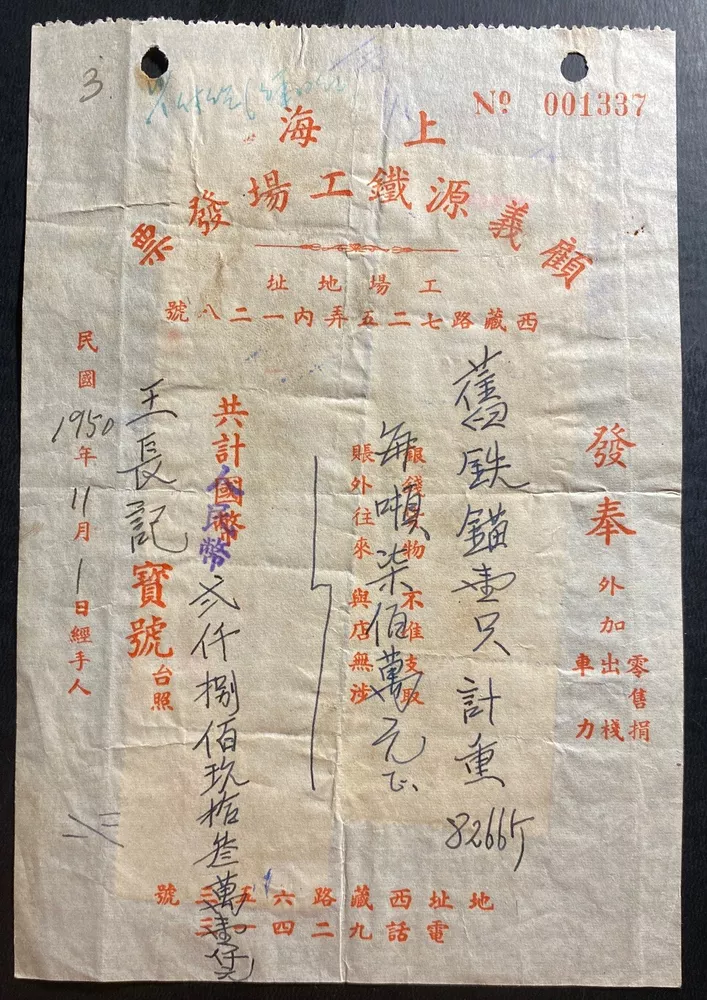 3.
Nº 001337
上海
顧義源鐵工場發票
工場地址
西藏路七二五弄內一二八號
發奉
外加
零售捐
出棧
車力
舊鉄錨壹只計重8266斤
銀錢貨物不准支取
賬外往來與店無涉
每噸柒佰萬元正
共計國幣
人民幣
弍仟捌佰玖拾叁萬壹仟元
王長記寶號台照
民國1950年11月1日經手人
地址西藏路六五三號
電話九二四一